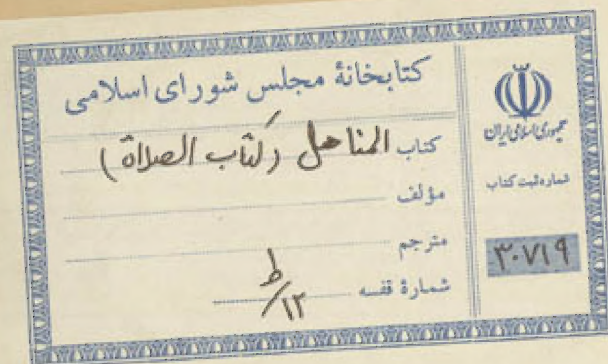 کتابخانهٔ مجلس شورای اسلامی
کتاب المناهل (کتاب الصلاة)
مؤلف
مترجم
شمارهٔ قفسه ط/۱۲
جمهوری اسلامی ایران
شماره ثبت کتاب
۳۰۷۱۹